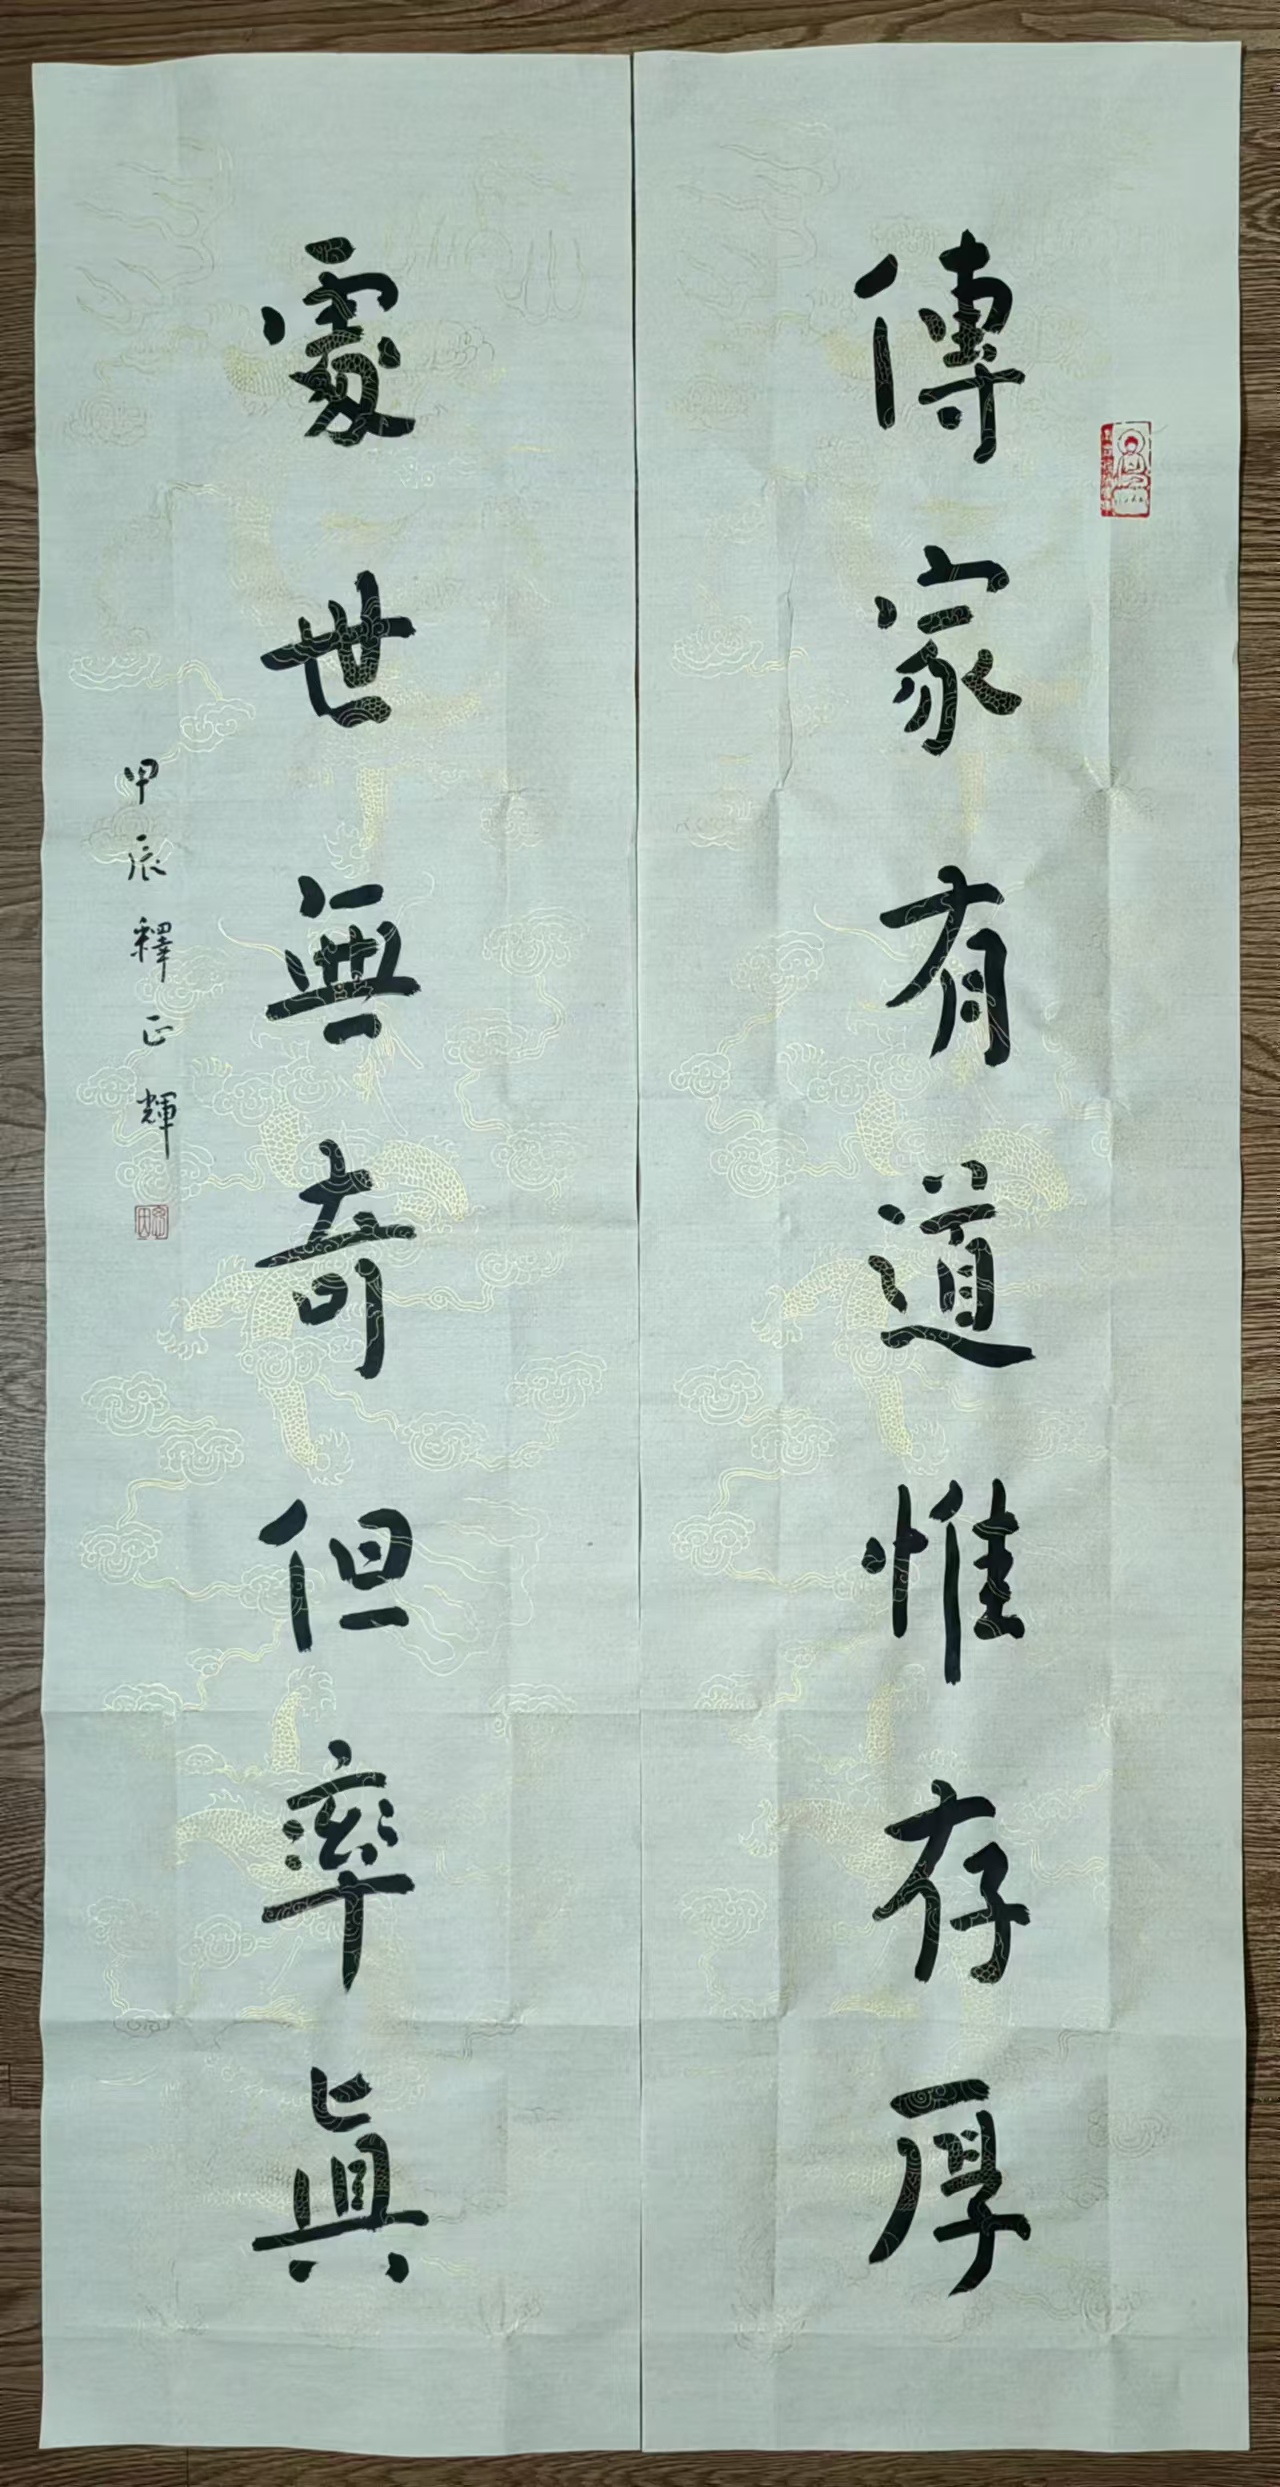 傳家有道惟存厚
處世無奇但率真
甲辰釋正輝